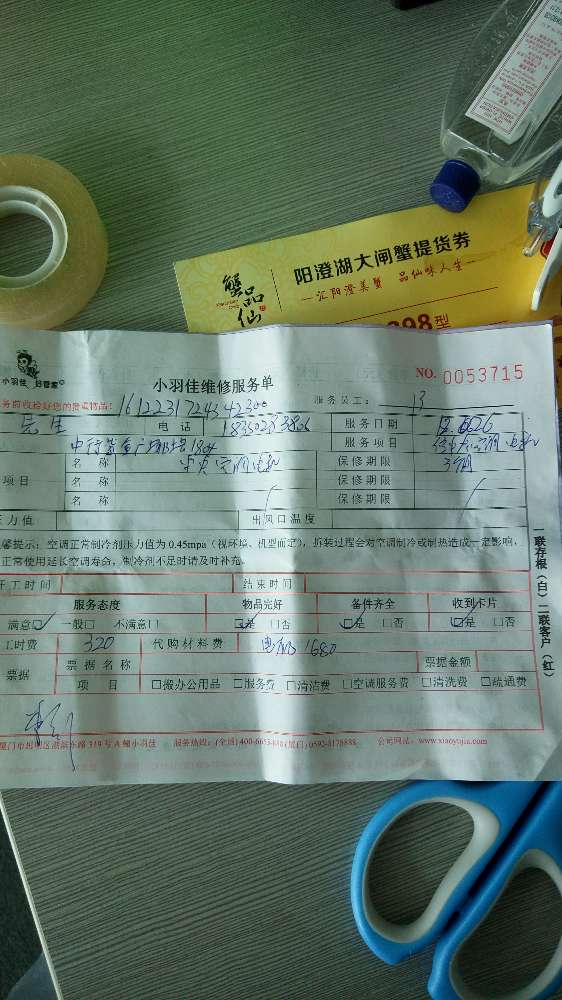 蟹品仙
阳澄湖大闸蟹提货券
汇阳澄美蟹 品仙味人生
398型
小羽佳 好管家
小羽佳维修服务单
NO. 0053715
务前收检好您的贵重物品: 1612231724342300
服务员工: 13
电话
服务日期
服务项目
项目
名称
中央空调电机
保修期限
3个月
名称
保修期限
名称
保修期限
压力值
出风口温度
馨提示: 空调正常制冷剂压力值为 0.45mpa (视环境、机型而定), 拆装过程会对空调制冷或制热造成一定影响,
正常使用延长空调寿命, 制冷剂不足时请及时补充。
开工时间
结束时间
服务态度 物品完好 备件齐全 收到卡片
满意☑ 一般□ 不满意□ ☑是 □否 ☑是 □否 ☑是 □否
工时费 320 代购材料费 电机 1680
票据
票据名称
票据金额
项目 □搬办公用品 □服务费 □清洁费 □空调服务费 □清洗费 □疏通费
一联存根(白) 二联客户(红)
厦门市思明区湖滨东路 319 号 A 幢小羽佳 服务热线: (全国) 400-6653-888 (厦门) 0592-8178888 公司网站: www.xiaoyujia.com